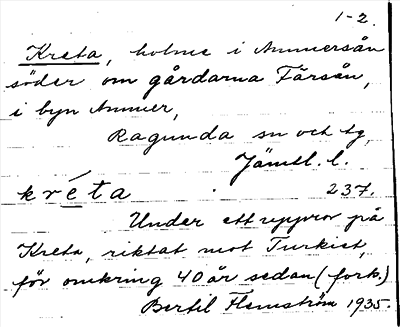 1-2.
Kreta, holme i Ammerån
söder om gårdarna Färsån,
i byn Ammer,
Ragunda sn och tg,
Jämtl. l.
kréta 237.
Under ett uppror på
Kreta, riktat mot Turkiet,
för omkring 40 år sedan (fork.)
Bertil Flemström 1935.